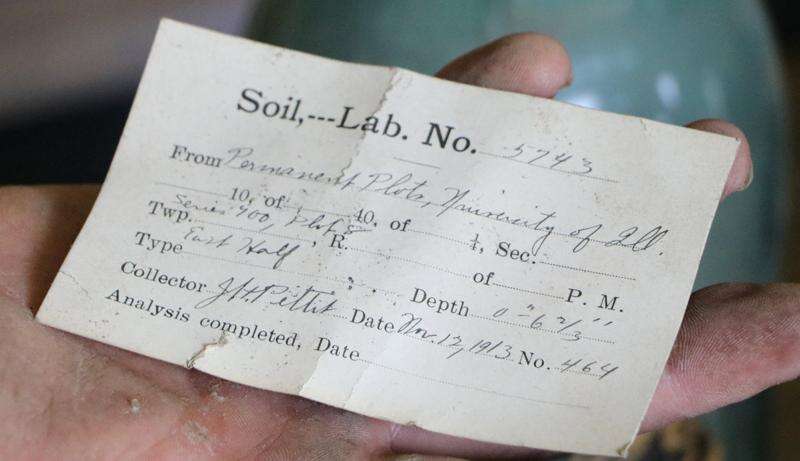 Soil,---Lab. No. 5743
From Permanent Plots, University of Ill.
10, of 40, of ¼, Sec.
Series 400, Plot
Twp. , R. of P. M.
Type East Half Depth 0"-6 2/3"
Collector J.H. Pettit Date Nov. 12, 1913 No. 464
Analysis completed, Date